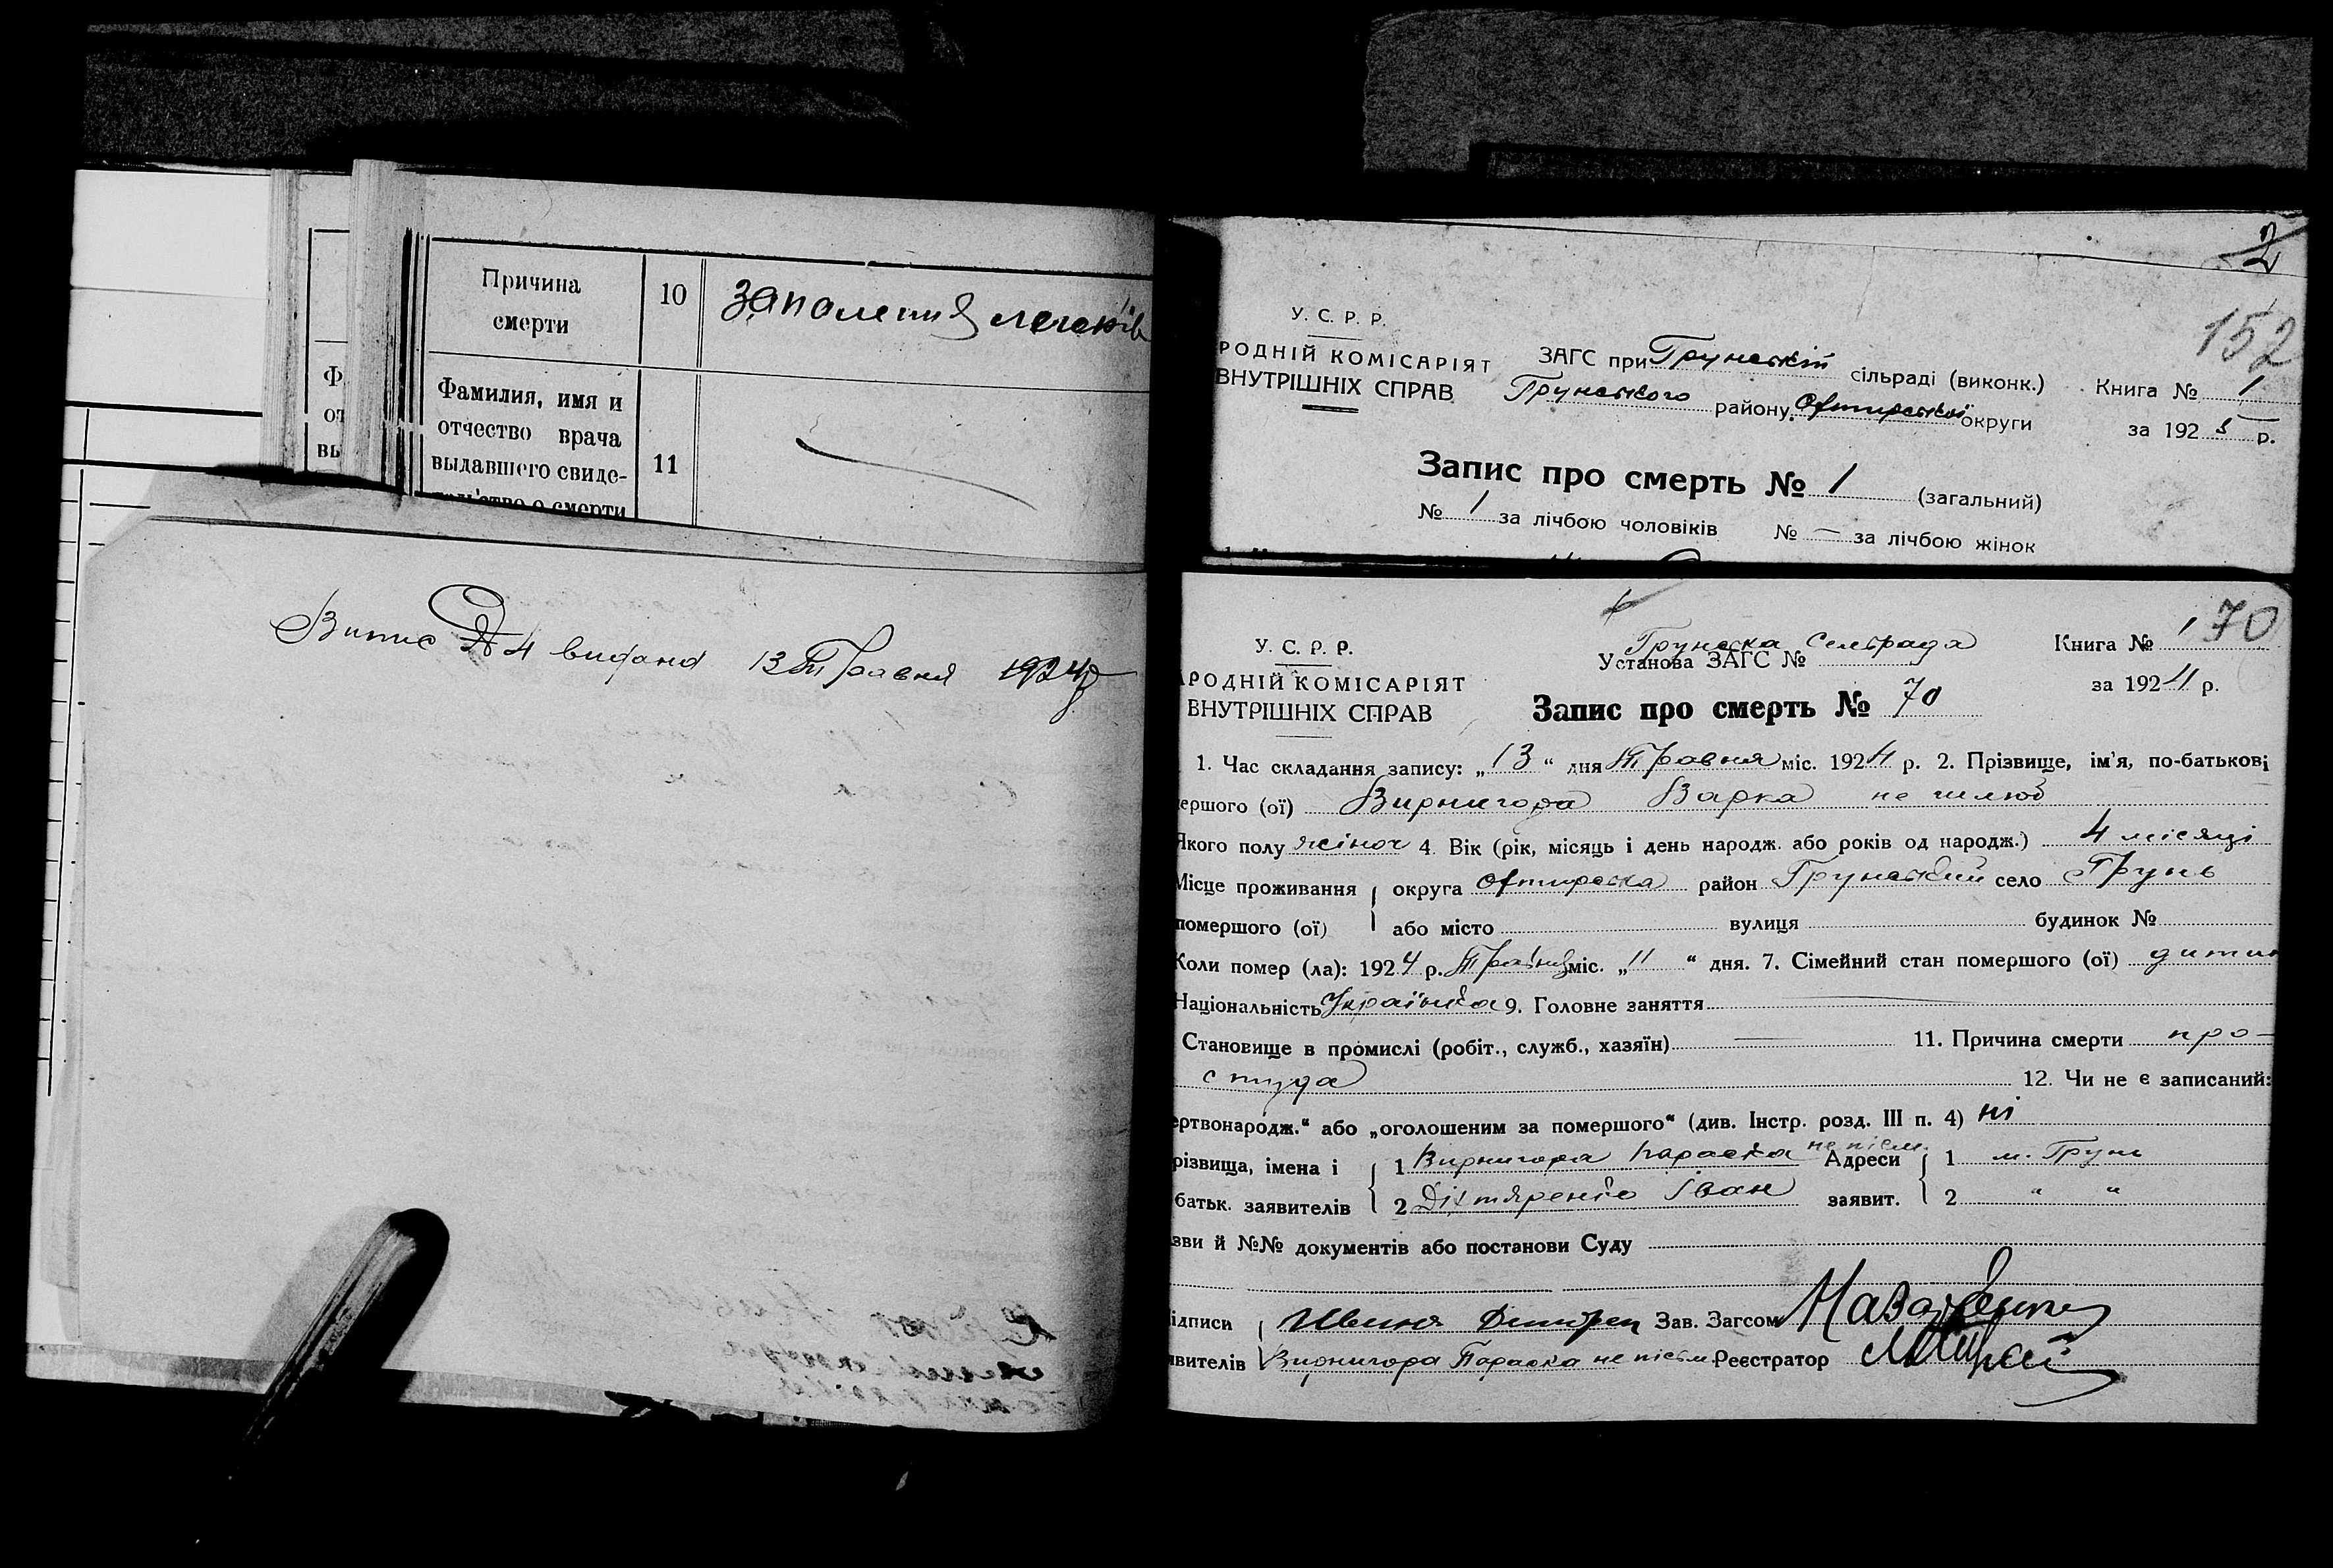 Причина
смерти
10
запаления легенів
Фамилия, имя и
отчество врача
выдавшего свиде-
11
Ф
от
вы
Випис № 4 видано 13 Травня 1924 р
2
152
У. С. Р. Р.
РОДНІЙ КОМІСАРІЯТ
ВНУТРІШНІХ СПРАВ
ЗАГС при Грунській сільраді (виконк.)
Грунського району Охтирської округи
Книга № 1
за 1925 р.
Запис про смерть № 1 (загальний)
№ 1 за лічбою чоловіків № — за лічбою жінок
70
У. С. Р. Р.
РОДНІЙ КОМІСАРІЯТ
ВНУТРІШНІХ СПРАВ
Грунська Сельрада
Установа ЗАГС №
Книга № 1
за 1924 р.
Запис про смерть № 70
1. Час складання запису: „13“ дня Травня міс. 1924 р. 2. Прізвище, ім'я, по-батькові
ершого (ої) Вирнигора Варка не шлюб
Якого полу жіноч 4. Вік (рік, місяць і день народж. або років од народж.) 4 місяці
Місце проживання округа Охтирська район Грунський село Грунь
помершого (ої) або місто вулиця будинок №
Коли помер (ла): 1924 р. Травня міс. „11“ дня. 7. Сімейний стан помершого (ої) дитин
Національність Українка 9. Головне заняття
Становище в промислі (робіт., служб., хазяїн) — 11. Причина смерти про-
студа 12. Чи не є записаний:
ертвонародж.“ або „оголошеним за помершого“ (див. Інстр. розд. III п. 4) ні
різвища, імена і 1 Вирнигора Параска не письм. Адреси 1 м. Грунь
батьк. заявителів 2 Діхтяренко Іван заявит. 2 " "
зви й №№ документів або постанови Суду
ідписи Зав. Загсом
явителів Вирнигора Параска не письм. Реєстратор